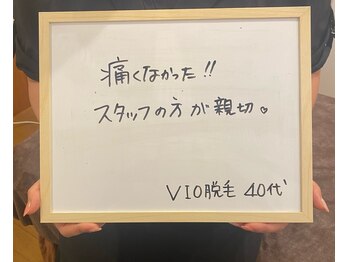 痛くなかった!!
スタッフの方が親切♡
VIO脱毛 40代